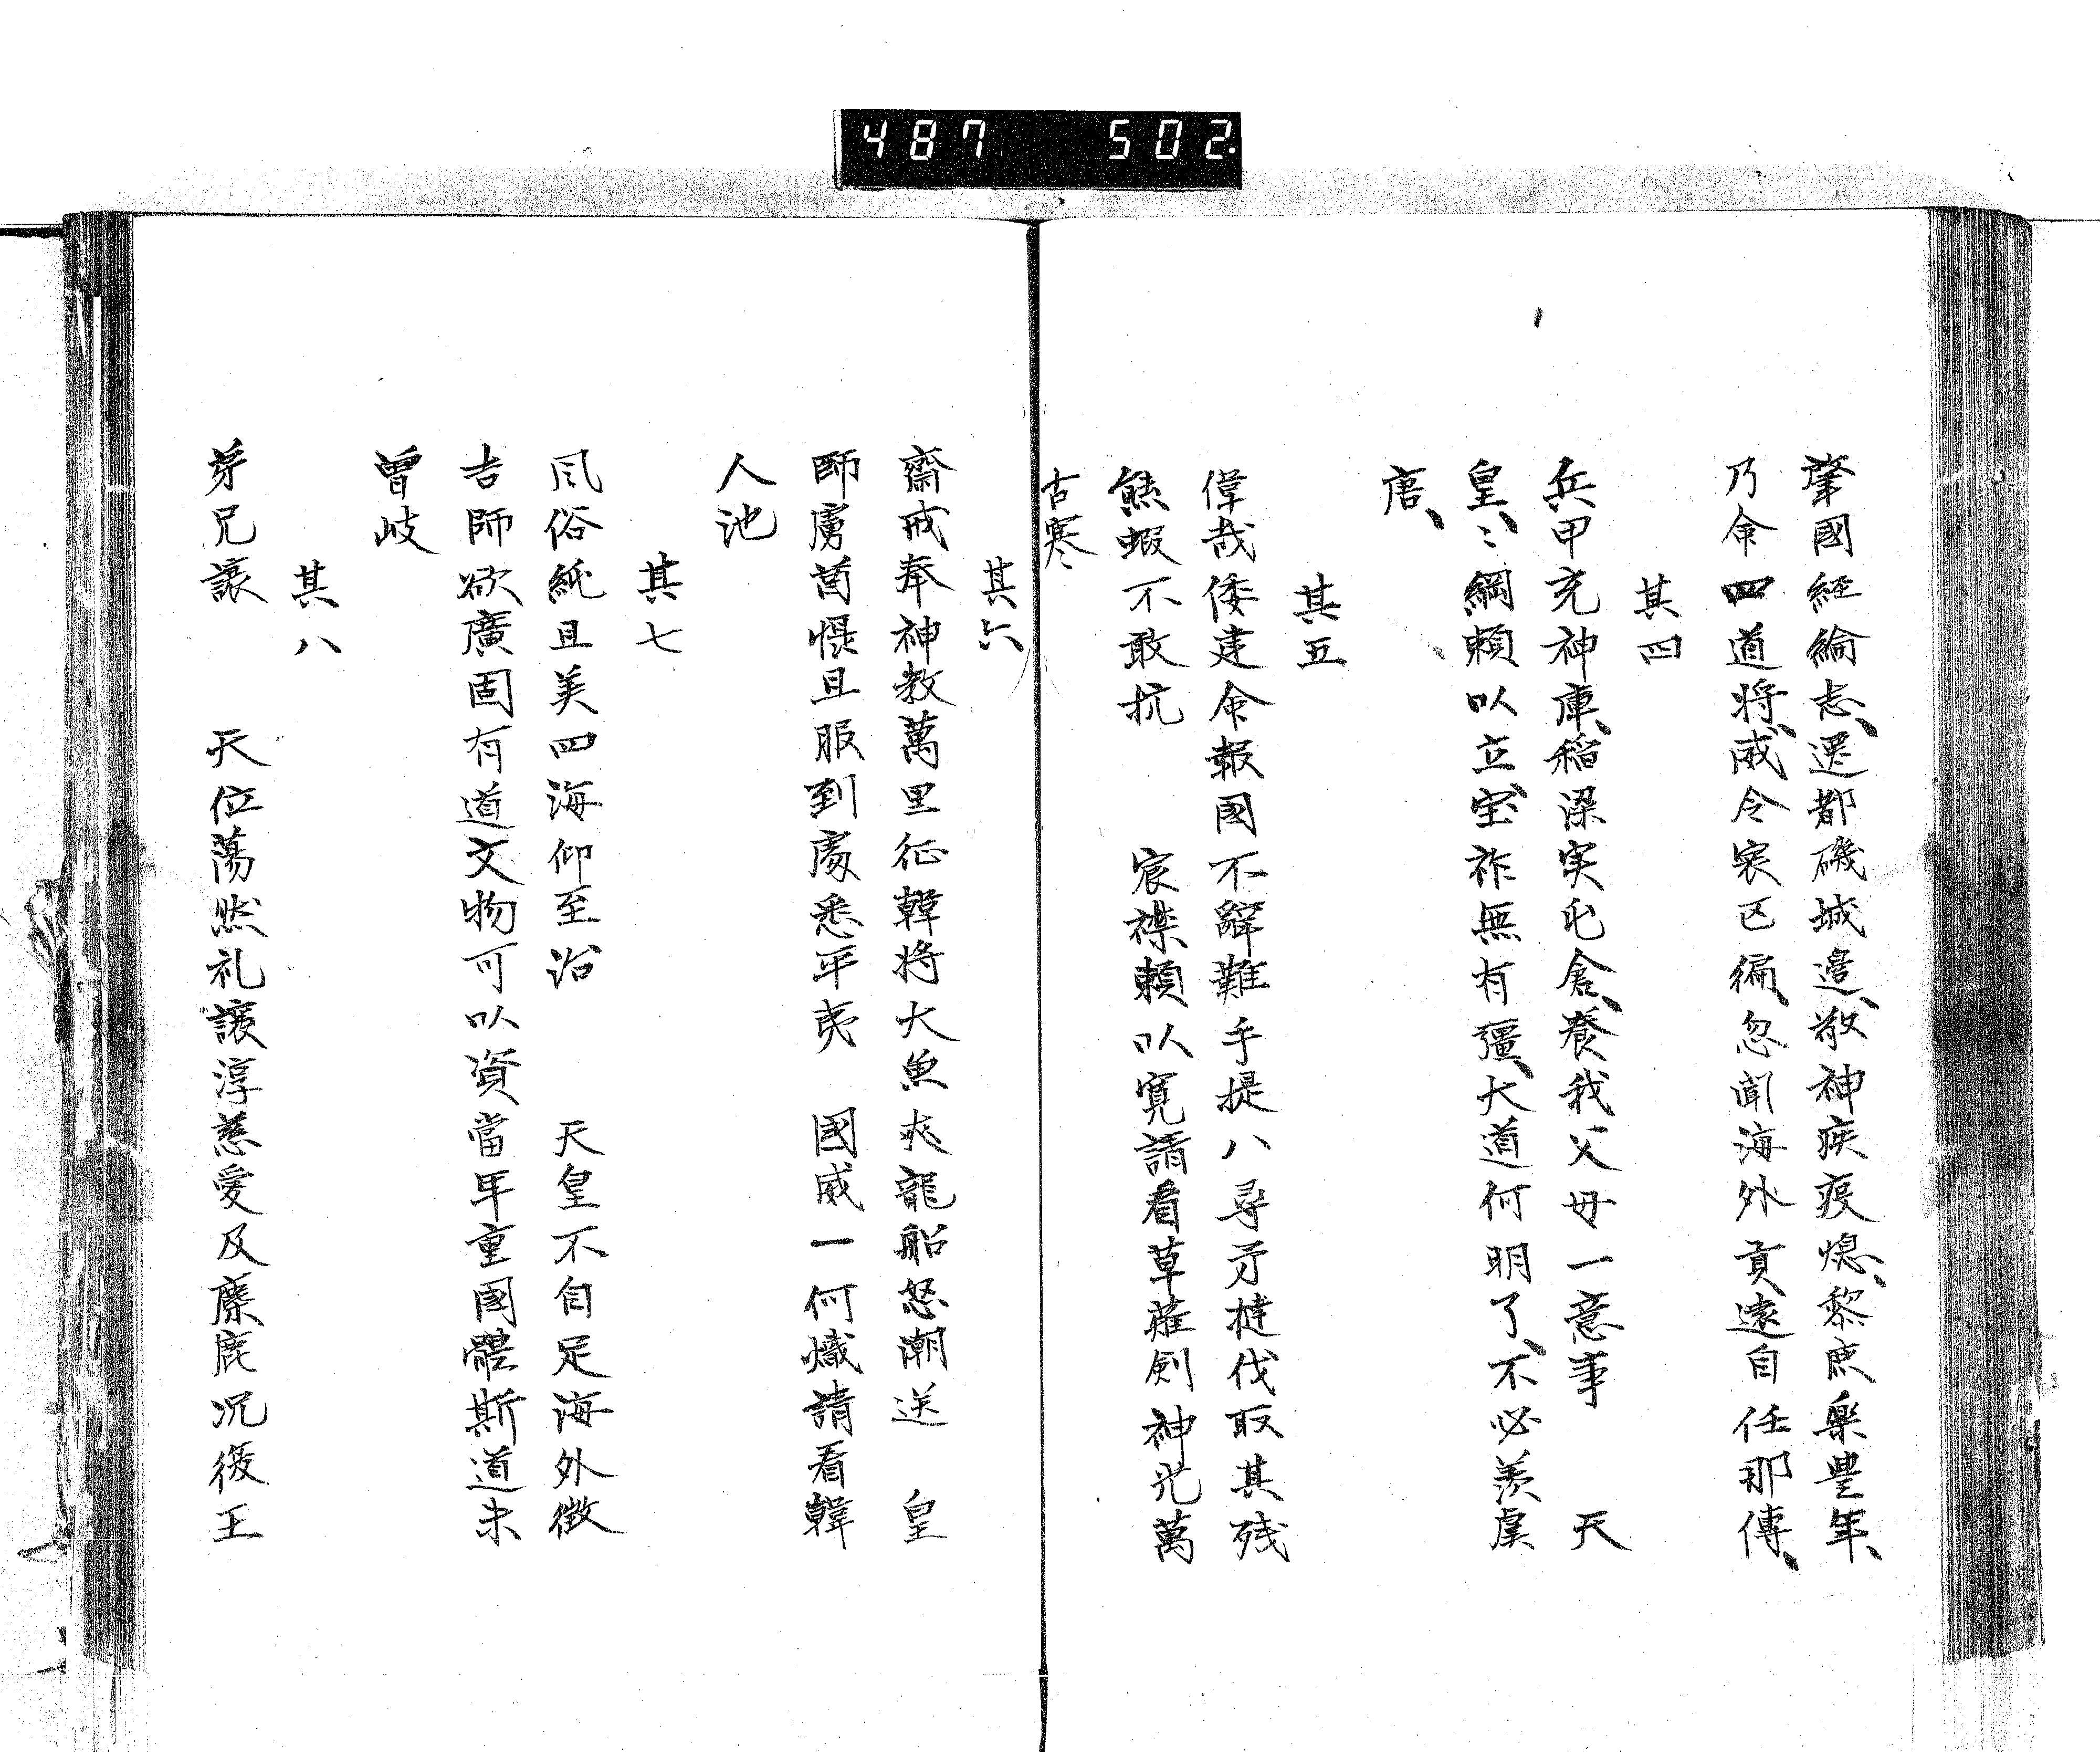 487 502.
肇國経綸志、遷都磯城邉、敬神疾疫熄、黎庶樂豊年、
乃命四道将、威令寔已徧、忽聞海外貢遠自任那傳、
其四
兵甲充神庫、稲梁実屯倉、養我父母一意事　天
皇、ミ綱頼以立宝祚無有彊、大道何明了、不必羨虞
唐、
其五
偉哉倭建命報國不辭難手提八尋矛撻伐取其残
熊蝦不敢抗　宸襟頼以寛請看草薙剣神光萬
古寒
其六
齋戒奉神教萬里征韓将大魚夾龍船怒潮送　皇
師虜酋惧且服到處悉平夷　國威一何熾請看韓
人池
其七
風俗純且美四海仰至治　天皇不自足海外徴
吉師欲廣固有道文物可以資當年重國體斯道未
曽岐
其八
苐兄譲　天位蕩然礼譲淳慈愛及麋鹿况後王